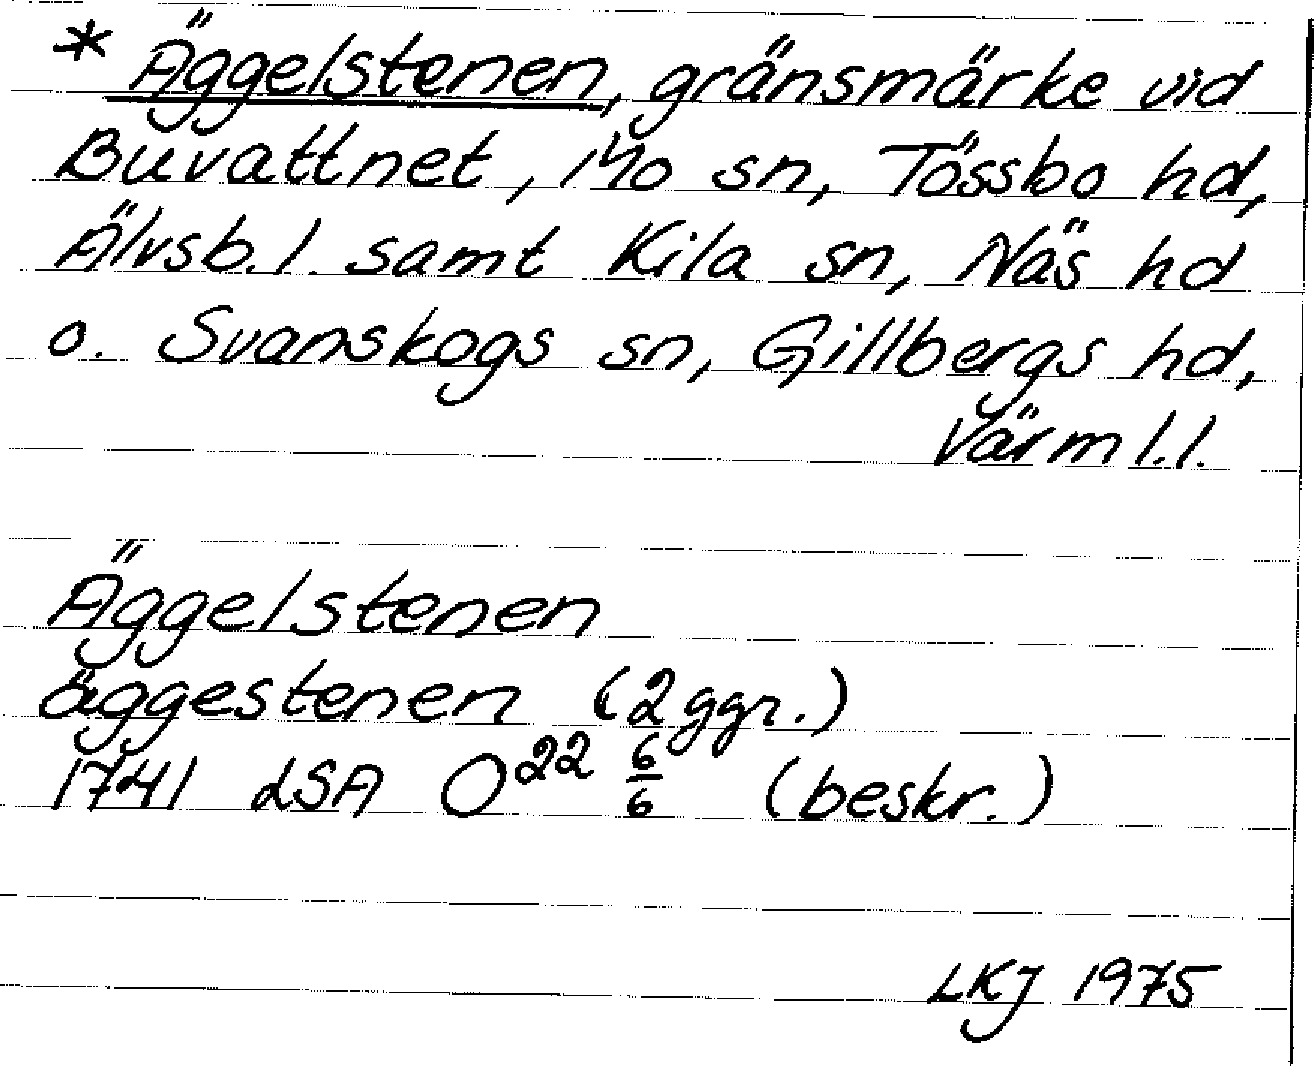 * Äggelstenen, gränsmärke vid
Buvattnet, Mo sn, Tössbo hd,
Älvsb. l. samt Kila sn, Näs hd
o. Svanskogs sn, Gillbergs hd,
Värml. l.
Äggelstenen
äggestenen (2 ggr.)
1741 LSA O²² 6/6 (beskr.)
LKJ 1975